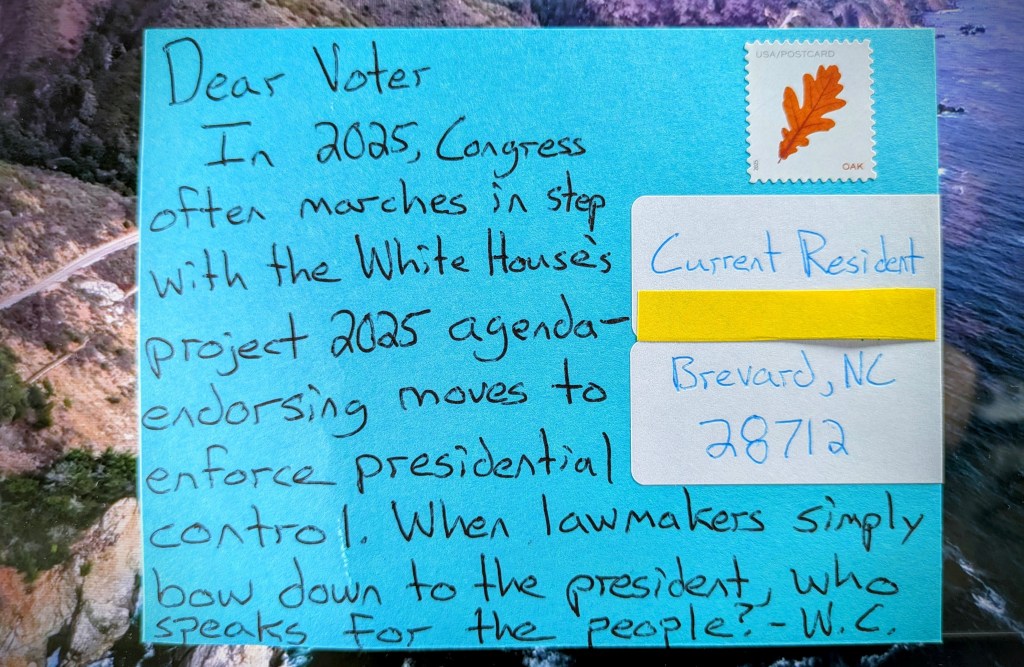 Dear Voter
USA/POSTCARD
OAK
In 2025, Congress
often marches in step
with the White House's
project 2025 agenda-
endorsing moves to
enforce presidential
control. When lawmakers simply
bow down to the president, who
speaks for the people? - W.C.
Current Resident
Brevard, NC
28712